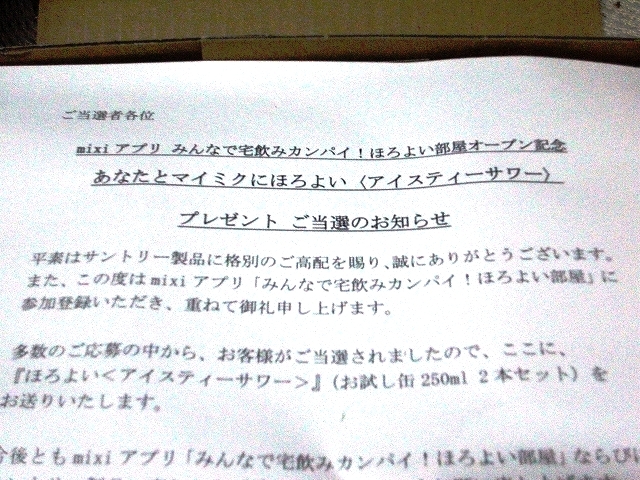 ご当選者各位
mixiアプリ みんなで宅飲みカンパイ！ほろよい部屋オープン記念
あなたとマイミクにほろよい〈アイスティーサワー〉
プレゼント ご当選のお知らせ
平素はサントリー製品に格別のご高配を賜り、誠にありがとうございます。
また、この度はmixiアプリ「みんなで宅飲みカンパイ！ほろよい部屋」に
参加登録いただき、重ねて御礼申し上げます。
多数のご応募の中から、お客様がご当選されましたので、ここに、
『ほろよい＜アイスティーサワー＞』（お試し缶250ml 2本セット）を
お送りいたします。
今後ともmixiアプリ「みんなで宅飲みカンパイ！ほろよい部屋」ならびに